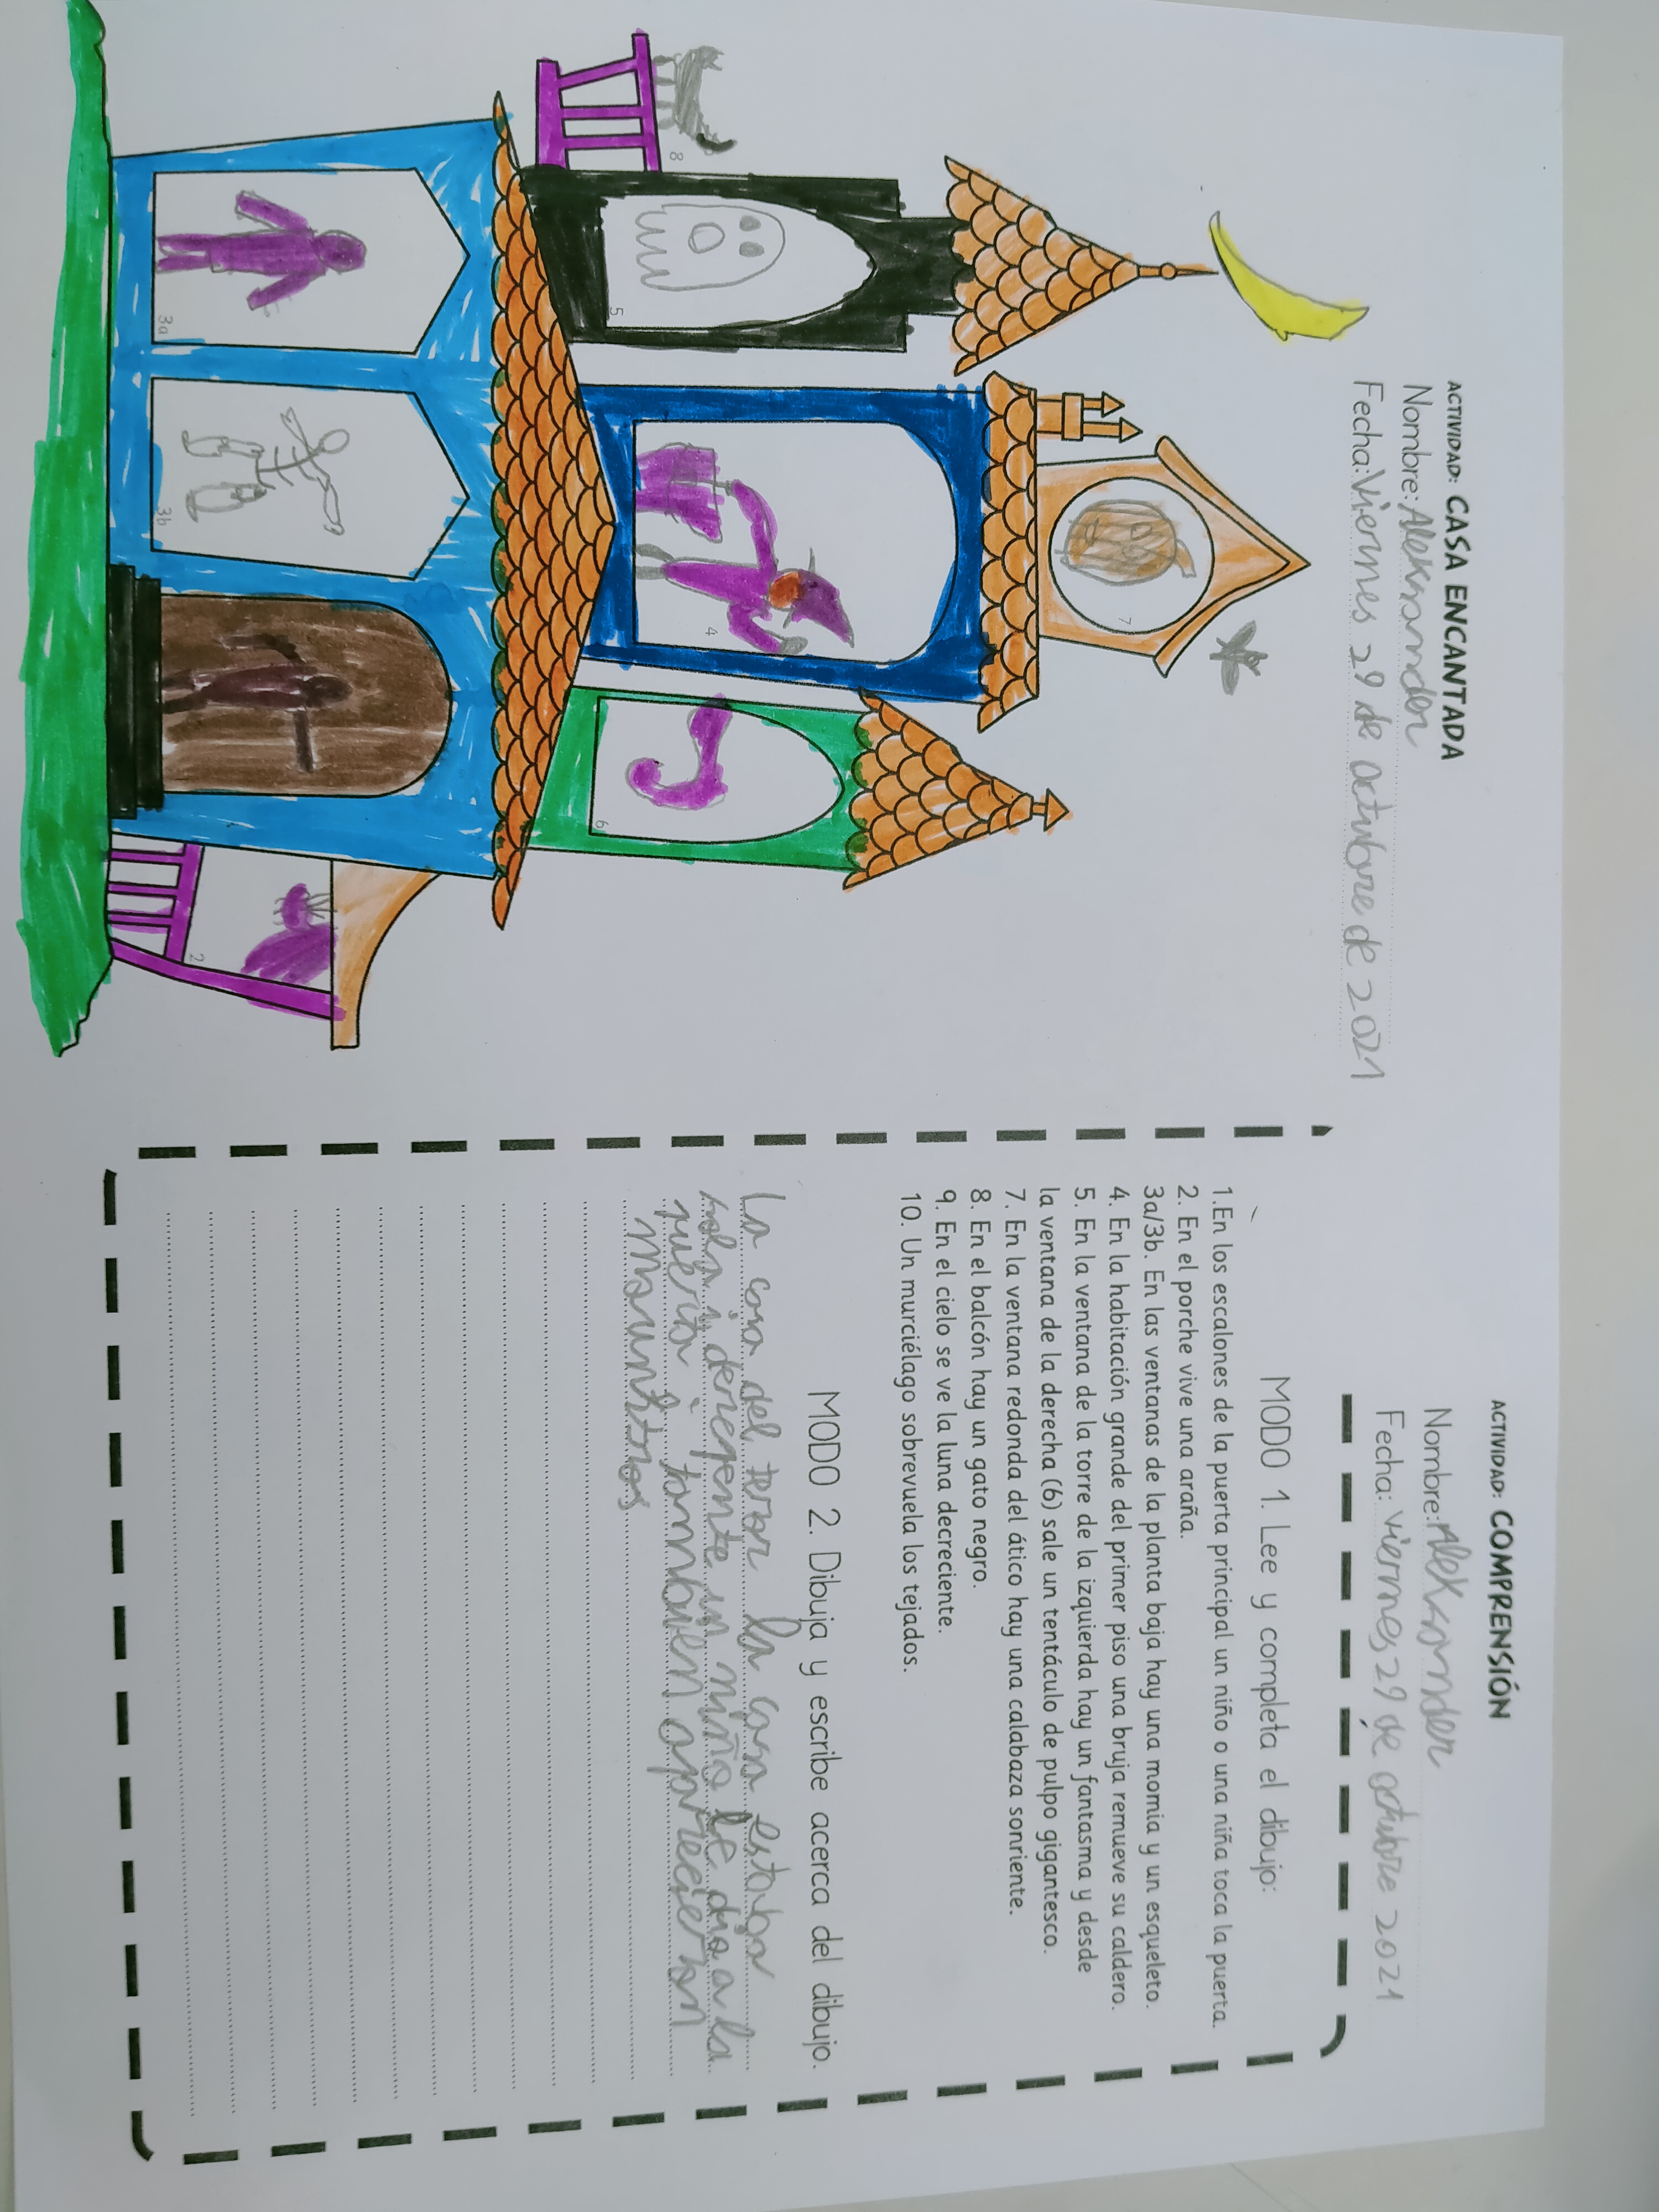 ACTIVIDAD: CASA ENCANTADA
Nombre: Aleksander
Fecha: Viernes 29 de octubre de 2021
7
8
5
4
6
3a
3b
2
ACTIVIDAD: COMPRENSIÓN
Nombre: Aleksander
Fecha: Viernes 29 de octubre 2021
MODO 1. Lee y completa el dibujo:
1. En los escalones de la puerta principal un niño o una niña toca la puerta.
2. En el porche vive una araña.
3a/3b. En las ventanas de la planta baja hay una momia y un esqueleto.
4. En la habitación grande del primer piso una bruja remueve su caldero.
5. En la ventana de la torre de la izquierda hay un fantasma y desde
la ventana de la derecha (6) sale un tentáculo de pulpo gigantesco.
7. En la ventana redonda del ático hay una calabaza sonriente.
8. En el balcón hay un gato negro.
9. En el cielo se ve la luna decreciente.
10. Un murciélago sobrevuela los tejados.
MODO 2. Dibuja y escribe acerca del dibujo.
La casa del terror la casa estaba
sola i derepente un niño le dio a la
puerta i tambien aparecieron
mounstros